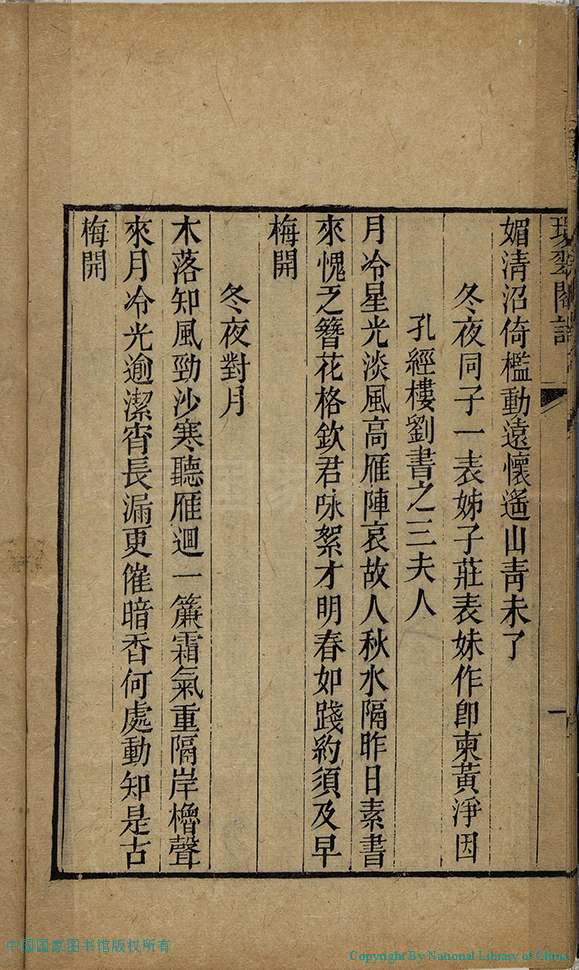 媚清沼倚檻動遠懷遙山青未了
冬夜同子一表姊子莊表妹作卽柬黃淨因
孔經樓劉書之三夫人
月冷星光淡風高雁陣哀故人秋水隔昨日素書
來愧乏簪花格欽君咏絮才明春如踐約須及早
梅開
冬夜對月
木落知風勁沙寒聽雁迴一簾霜氣重隔岸櫓聲
來月冷光逾潔宵長漏更催暗香何處動知是古
梅開
一
中国国家图书馆版权所有
Copyright By National Library of China